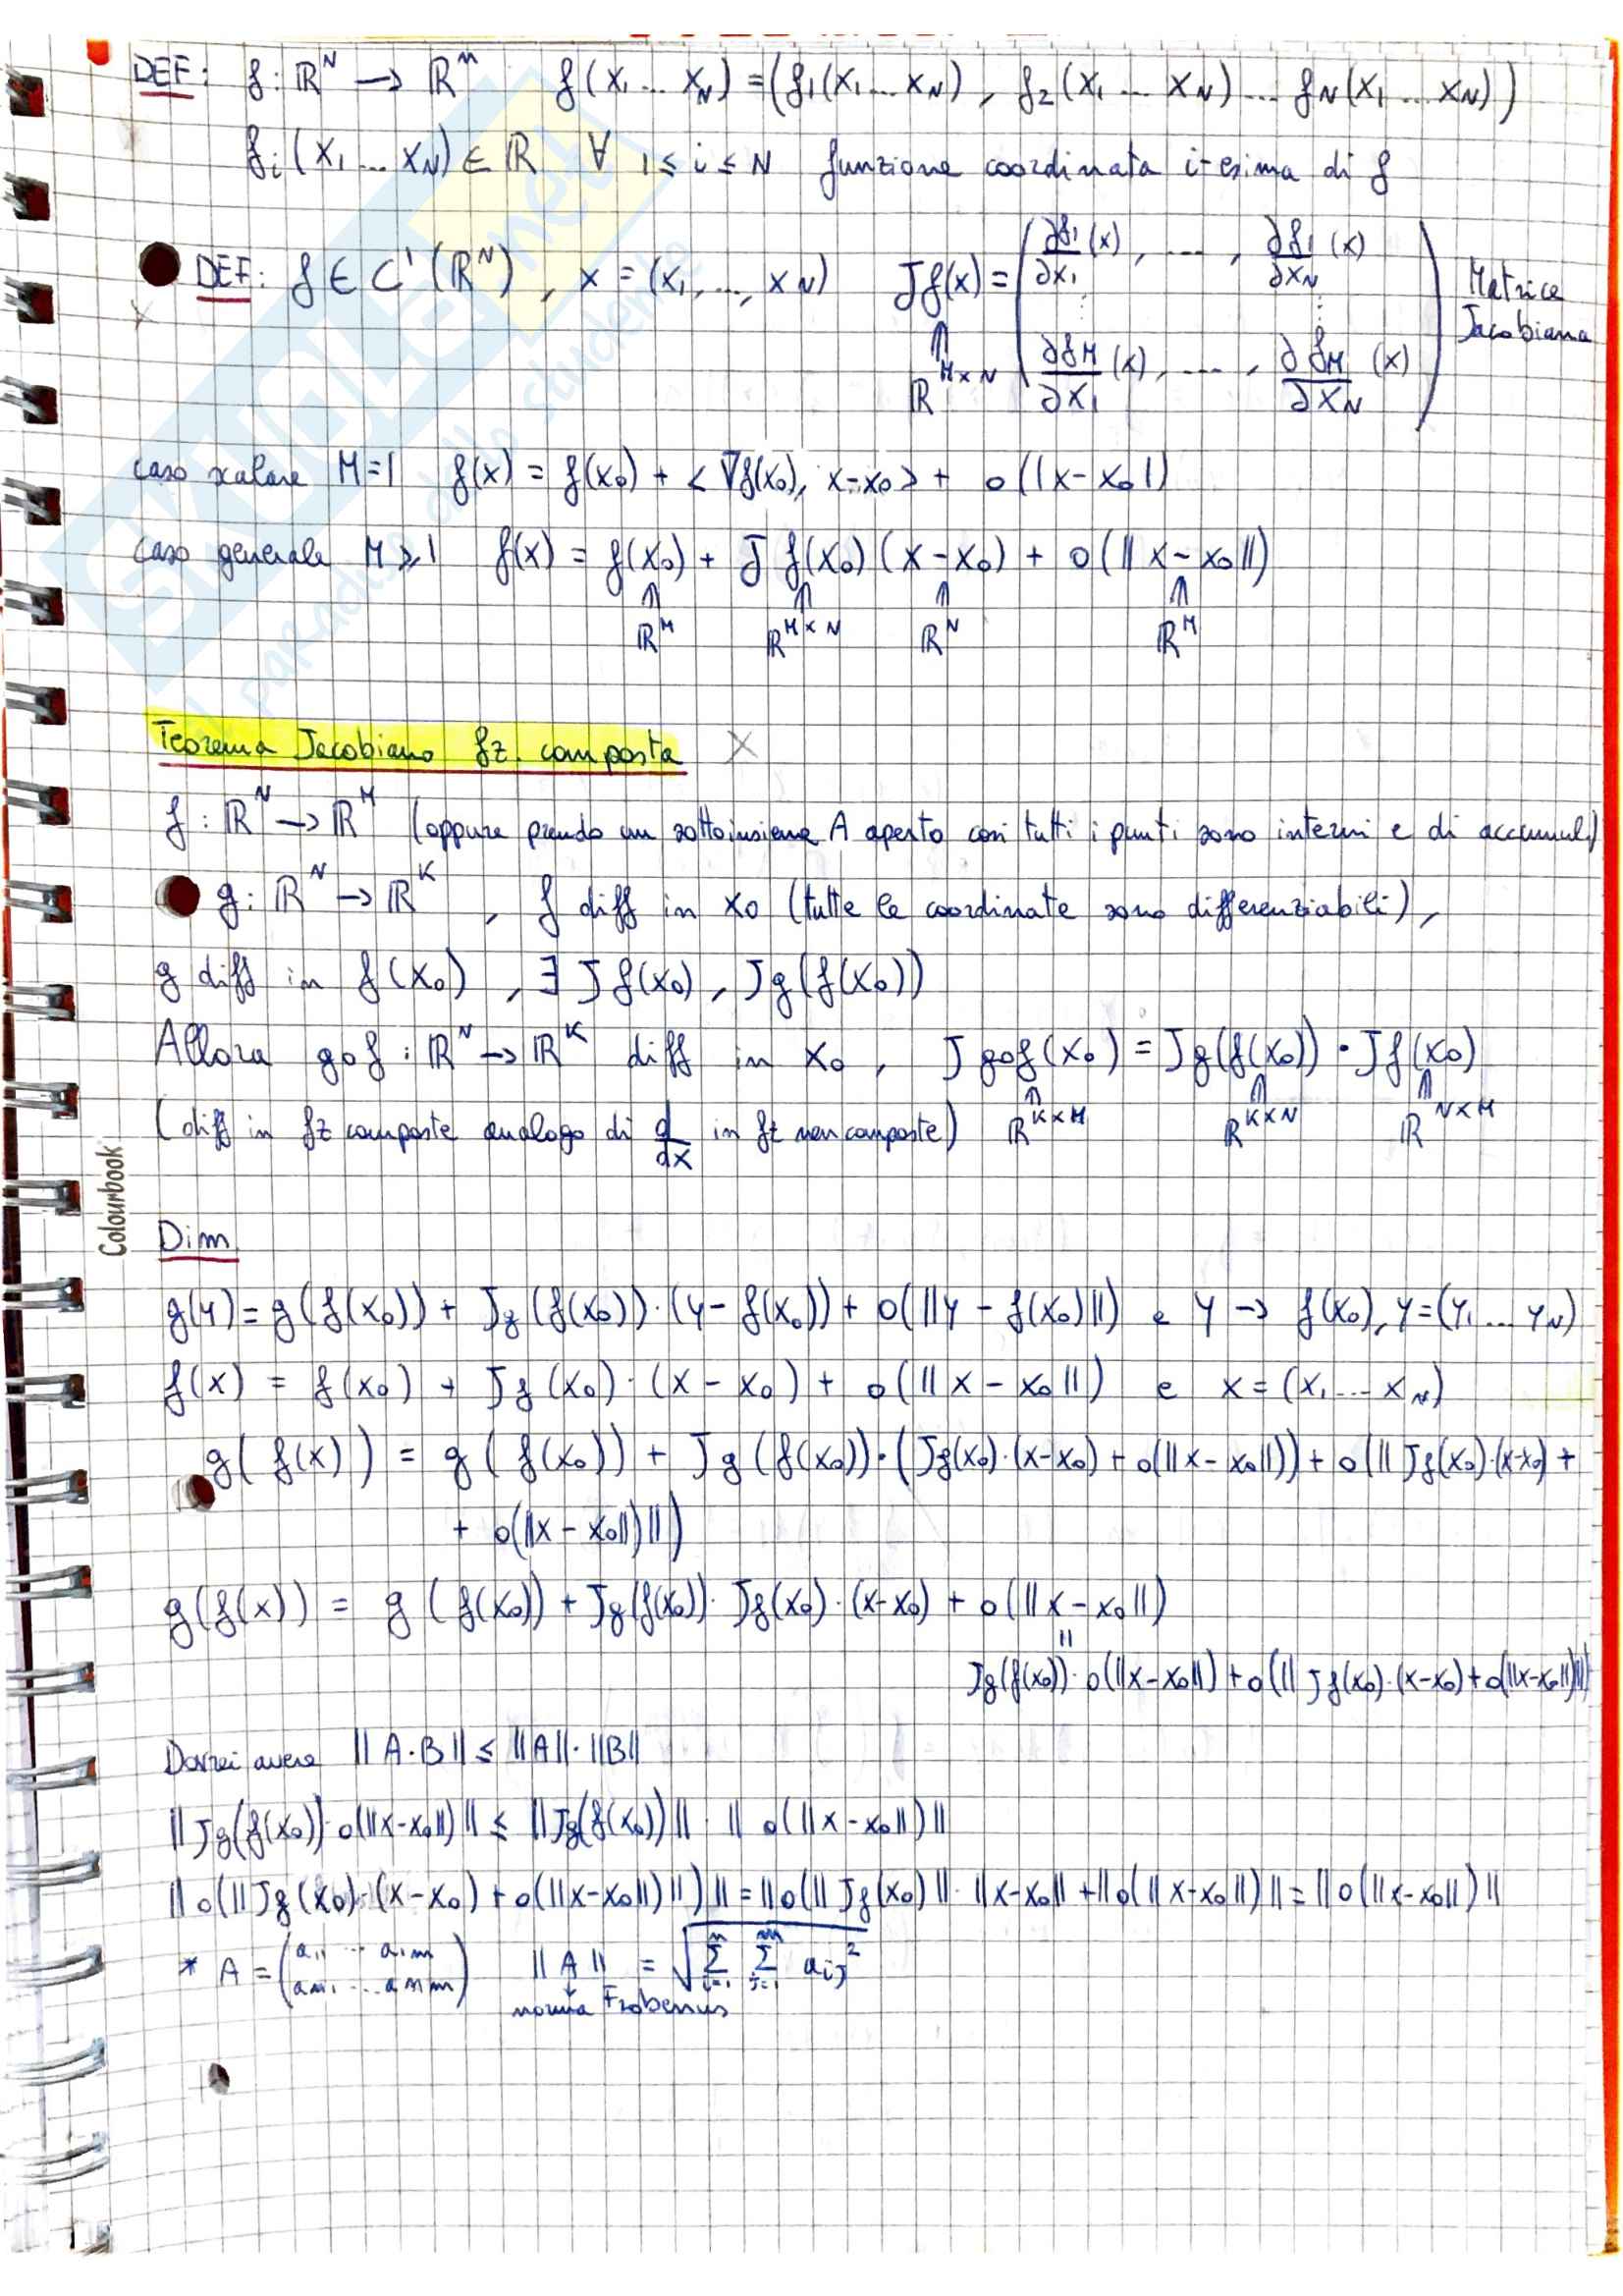 DEF: f: ℝᴺ → ℝᵐ f(x₁ ... x_N) = (f₁(x₁ ... x_N), f₂(x₁ ... x_N) ... f_N(x₁ ... x_N))
fᵢ(x₁ ... x_N) ∈ ℝ ∀ 1 ≤ i ≤ N funzione coordinata i-esima di f
DEF: f ∈ C¹(ℝᴺ), x = (x₁, ..., x_N) Jf(x) = ( ∂f₁/∂x₁ (x), ..., ∂f₁/∂x_N (x)
⋮ ⋮
∂f_M/∂x₁ (x), ..., ∂f_M/∂x_N (x) ) Matrice Jacobiana
⇑ ℝ^{M×N}
caso scalare M=1 f(x) = f(x₀) + <∇f(x₀), x-x₀> + o(|x-x₀|)
caso generale M ≥ 1 f(x) = f(x₀) + J f(x₀)(x-x₀) + o(‖x-x₀‖)
⇑ ⇑ ⇑ ⇑
ℝᴹ ℝ^{M×N} ℝᴺ ℝᴹ
Teorema Jacobiano fz. composta X
f: ℝᴺ → ℝᴹ (oppure prendo un sottoinsieme A aperto così tutti i punti sono interni e di accumul.)
g: ℝᴺ → ℝᴷ, f diff in x₀ (tutte le coordinate sono differenziabili),
g diff in f(x₀), ∃ Jf(x₀), Jg(f(x₀))
Allora g∘f: ℝᴺ → ℝᴷ diff in x₀, J g∘f(x₀) = Jg(f(x₀)) · Jf(x₀)
⇑ ⇑ ⇑
(diff in fz composte analogo di d/dx in fz non composte) ℝ^{K×M} ℝ^{K×N} ℝ^{N×M}
Dim
g(y) = g(f(x₀)) + Jg(f(x₀))·(y - f(x₀)) + o(‖y - f(x₀)‖) e y → f(x₀), y = (y₁ ... y_N)
f(x) = f(x₀) + Jf(x₀)·(x-x₀) + o(‖x-x₀‖) e x = (x₁ ... x_N)
g(f(x)) = g(f(x₀)) + Jg(f(x₀))·(Jf(x₀)·(x-x₀) + o(‖x-x₀‖)) + o(‖Jf(x₀)·(x-x₀) +
+ o(‖x-x₀‖)‖)
g(f(x)) = g(f(x₀)) + Jg(f(x₀))·Jf(x₀)·(x-x₀) + o(‖x-x₀‖)
=
Jg(f(x₀))·o(‖x-x₀‖) + o(‖Jf(x₀)·(x-x₀) + o(‖x-x₀‖)‖)
Dovrei avere ‖A·B‖ ≤ ‖A‖·‖B‖
‖Jg(f(x₀))·o(‖x-x₀‖)‖ ≤ ‖Jg(f(x₀))‖·‖o(‖x-x₀‖)‖
‖o(‖Jf(x₀)·(x-x₀) + o(‖x-x₀‖)‖)‖ = ‖o(‖Jf(x₀)‖·‖x-x₀‖ + ‖o(‖x-x₀‖)‖ = ‖o(‖x-x₀‖)‖
* A = (a₁₁ ... a₁m
an₁ ... anm) ‖A‖ = √(Σᵢ₌₁ⁿ Σⱼ₌₁ᵐ aᵢⱼ²)
norma Frobenius
Colourbook
SKUOLA.net
il paradiso dello studente